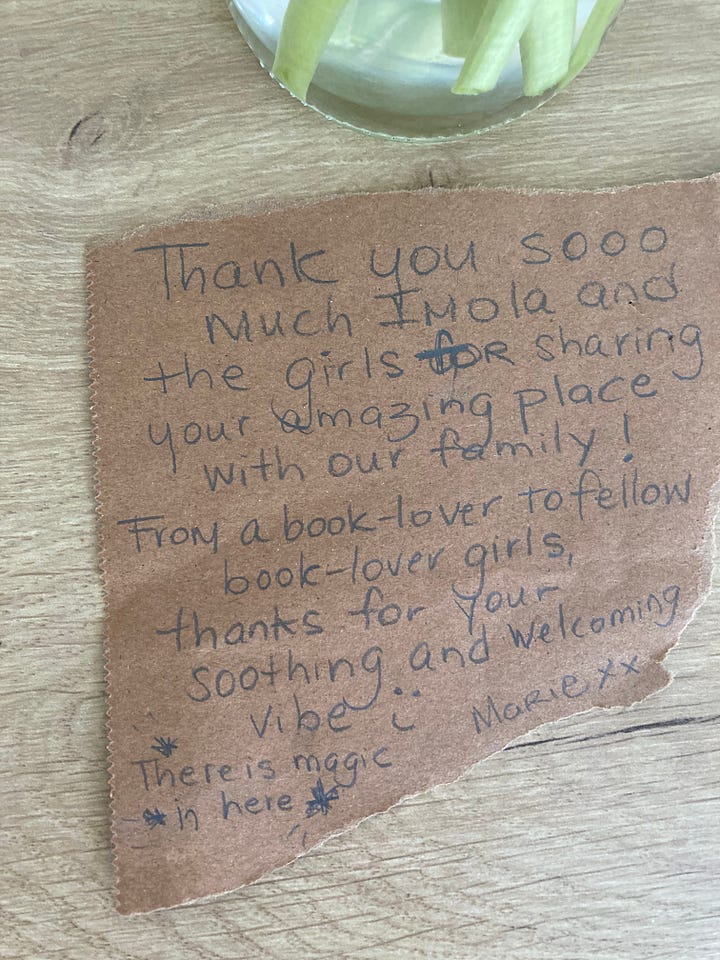 Thank you sooo
much Imola and
the girls for sharing
your amazing place
with our family!
From a book-lover to fellow
book-lover girls,
thanks for your
soothing and welcoming
vibe :)
Marie xx
There is magic
in here